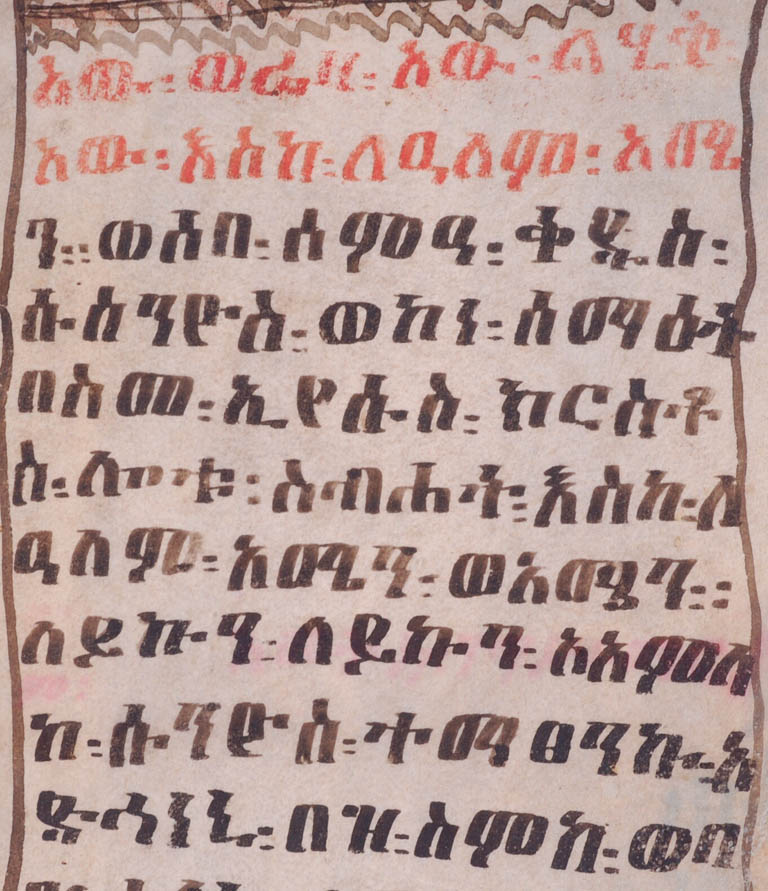 አው፡ ወሬዛ፡ አው፡ ልሂቅ፡
አው፡ እስከ፡ ለዓለም፡ አሜ
ን። ወሰበ፡ ሰምዓ፡ ቅዱስ፡
ሱስንዮስ፡ ወከነ፡ ሰማዕት
በስመ፡ ኢየሱስ፡ ክርስቶ
ስ፡ ስብሐት፡ እስከ፡ ለ
ዓለም፡ አሜን፡ ወአሜን።
ለይኩን፡ ለይኩን፡ አአምለ
ከ፡ ሱንዮስ፡ ተማፀንኩ፡ አ
ድኅነኒ፡ በዝ፡ ስምከ፡ ወባ